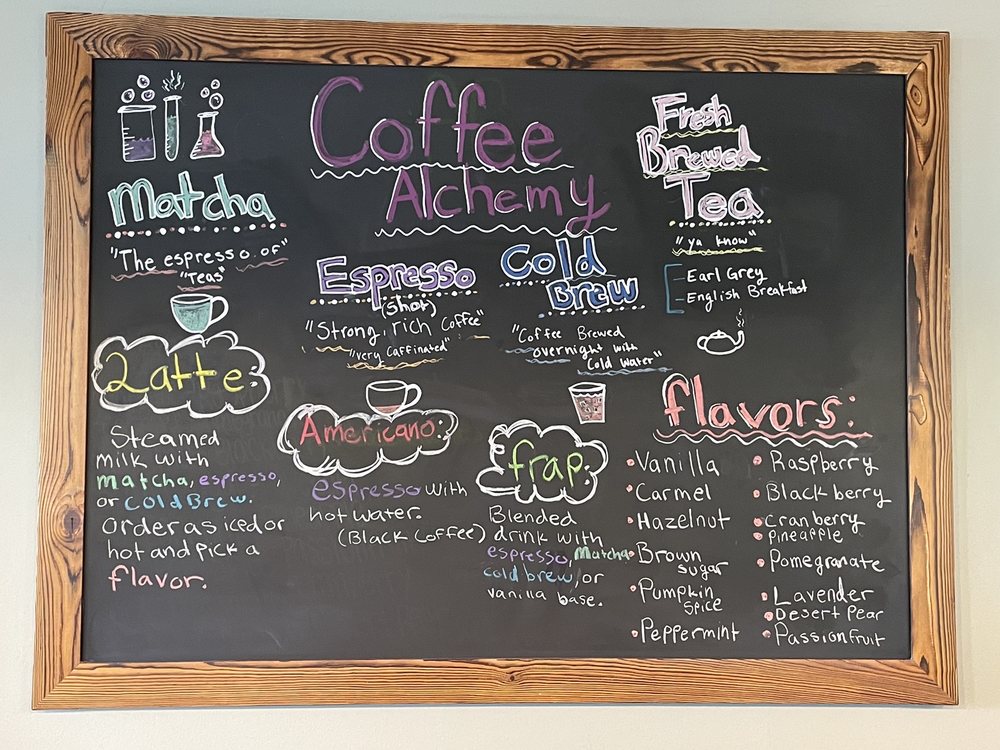 Coffee
Alchemy
Matcha
"The espresso of"
"Teas"
Espresso
(shot)
"Strong, rich Coffee"
"very Caffinated"
Cold
Brew
"Coffee Brewed
overnight with
Cold Water"
Fresh
Brewed
Tea
"ya know"
Earl Grey
English Breakfast
Latte:
Steamed
milk with
Matcha, espresso,
or Cold Brew.
Order as iced or
hot and pick a
flavor.
Americano:
espresso with
hot water.
(Black Coffee)
frap:
Blended
drink with
espresso, Matcha
cold brew, or
vanilla base.
flavors:
• Vanilla
• Carmel
• Hazelnut
• Brown
sugar
• Pumpkin
spice
• Peppermint
• Raspberry
• Blackberry
• Cranberry
• pineapple
• Pomegranate
• Lavender
• Desert Pear
• Passionfruit